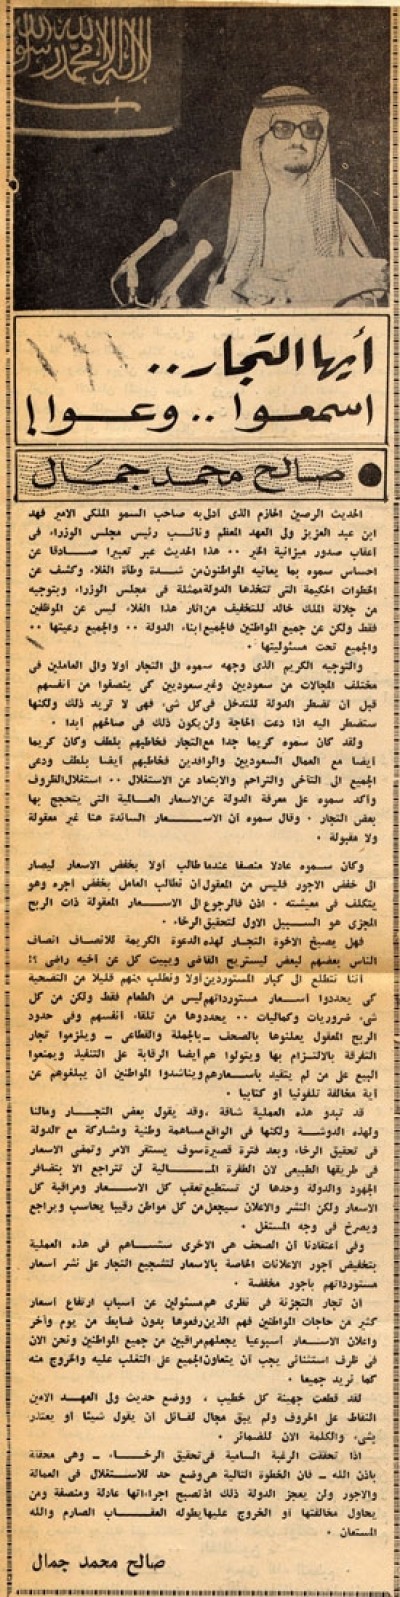 لا إله إلا الله محمد رسول
أيها التجار ..
اسمعوا .. وعوا !
● صالح محمد جمال
الحديث الرصين الحازم الذى أدلى به صاحب السمو الملكى الامير فهد
ابن عبد العزيز ولى العهد المعظم ونائب رئيس مجلس الوزراء فى
أعقاب صدور ميزانية الخير .. هذا الحديث عبر تعبيرا صادقا عن
احساس سموه بما يعانيه المواطنون من شدة وطأة الغلاء وكشف عن
الخطوات الحكيمة التى تتخذها الدولة ممثلة فى مجلس الوزراء وبتوجيه
من جلالة الملك خالد للتخفيف من آثار هذا الغلاء ليس عن الموظفين
فقط ولكن عن جميع المواطنين فالجميع أبناء الدولة .. والجميع رعيتها ..
والجميع تحت مسئوليتها .
والتوجيه الكريم الذى وجهه سموه الى التجار أولا والى العاملين فى
مختلف المجالات من سعوديين وغير سعوديين كى ينصفوا من أنفسهم
قبل أن تضطر الدولة للتدخل فى كل شىء فهى لا تريد ذلك ولكنها
ستضطر اليه اذا دعت الحاجة ولن يكون ذلك فى صالحهم أبدا .
ولقد كان سموه كريما جدا مع التجار فخاطبهم بلطف وكان كريما
أيضا مع العمال السعوديين والوافدين فخاطبهم أيضا بلطف ودعى
الجميع الى التآخى والتراحم والابتعاد عن الاستغلال .. استغلال الظروف
وأكد سموه على معرفة الدولة عن الاسعار العالمية التى يتحجج بها
بعض التجار . وقال سموه أن الاسعار السائدة هنا غير معقولة
ولا مقبولة .
وكان سموه عادلا منصفا عندما طالب أولا بخفض الاسعار ليصار
الى خفض الاجور فليس من المعقول أن نطالب العامل بخفض أجره وهو
يتكلف فى معيشته . اذن فالرجوع الى الاسعار المعقولة ذات الربح
المجزى هو السبيل الاول لتحقيق الرخاء .
فهل يصيخ الاخوة التجار لهذه الدعوة الكريمة للانصاف انصاف
الناس بعضهم لبعض ليستريح القاضى ويبيت كل عن أخيه راضى ؟!
أننا نتطلع الى كبار المستوردين أولا ونطلب منهم قليلا من التضحية
كى يحددوا أسعار مستورداتهم ليس من الطعام فقط ولكن من كل
شىء ضروريات وكماليات .. يحددوها من تلقاء أنفسهم وفى حدود
الربح المعقول يعلنوها بالصحف ـ بالجملة والقطاعى ـ ويلزموا تجار
التفرقة بالالتزام بها ويتولوا هم أيضا الرقابة على التنفيذ ويمنعوا
البيع على من لم يتقيد بأسعارهم ويناشدوا المواطنين أن يبلغوهم عن
أية مخالفة تلفونيا أو كتابيا .
قد تبدو هذه العملية شاقة ، وقد يقول بعض التجار ومالنا
ولهذه الدوشة ولكنها فى الواقع مساهمة وطنية ومشاركة مع الدولة
فى تحقيق الرخاء وبعد فترة قصيرة سوف يستقر الامر وتمضى الاسعار
فى طريقها الطبيعى لان الطفرة المالية لن تتراجع الا بتضافر
الجهود والدولة وحدها لن تستطيع تعقب كل الاسعار ومراقبة كل
الاسعار ولكن النشر والاعلان سيجعل من كل مواطن رقيبا يحاسب ويراجع
ويصرخ فى وجه المستغل .
وفى اعتقادنا أن الصحف هى الاخرى ستساهم فى هذه العملية
بتخفيض أجور الاعلانات الخاصة بالاسعار لتشجيع التجار على نشر أسعار
مستورداتهم بأجور مخفضة .
أن تجار التجزئة فى نظرى هم مسئولين عن أسباب ارتفاع أسعار
كثير من حاجات المواطنين فهم الذين رفعوها بدون ضابط من يوم وآخر
واعلان الاسعار أسبوعيا يجعلهم مراقبين من جميع المواطنين ونحن الان
فى ظرف استثنائى يجب أن يتعاون الجميع على التغلب عليه والخروج منه
كما نريد جميعا .
لقد قطعت جهيزة كل خطيب ، ووضع حديث ولى العهد الامين
النقاط على الحروف ولم يبق مجال لقائل أن يقول شيئا أو يعتذر
بشىء والكلمة الان للضمائر .
اذا تحققت الرغبة السامية فى تحقيق الرخاء ـ وهى محققة
باذن الله ـ فان الخطوة التالية هى وضع حد للاستغلال فى العمالة
والاجور ولن يعجز الدولة ذلك اذ تصبح اجراءاتها عادلة ومنصفة ومن
يحاول مخالفتها أو الخروج عليها يطوله العقاب الصارم والله
المستعان .
صالح محمد جمال